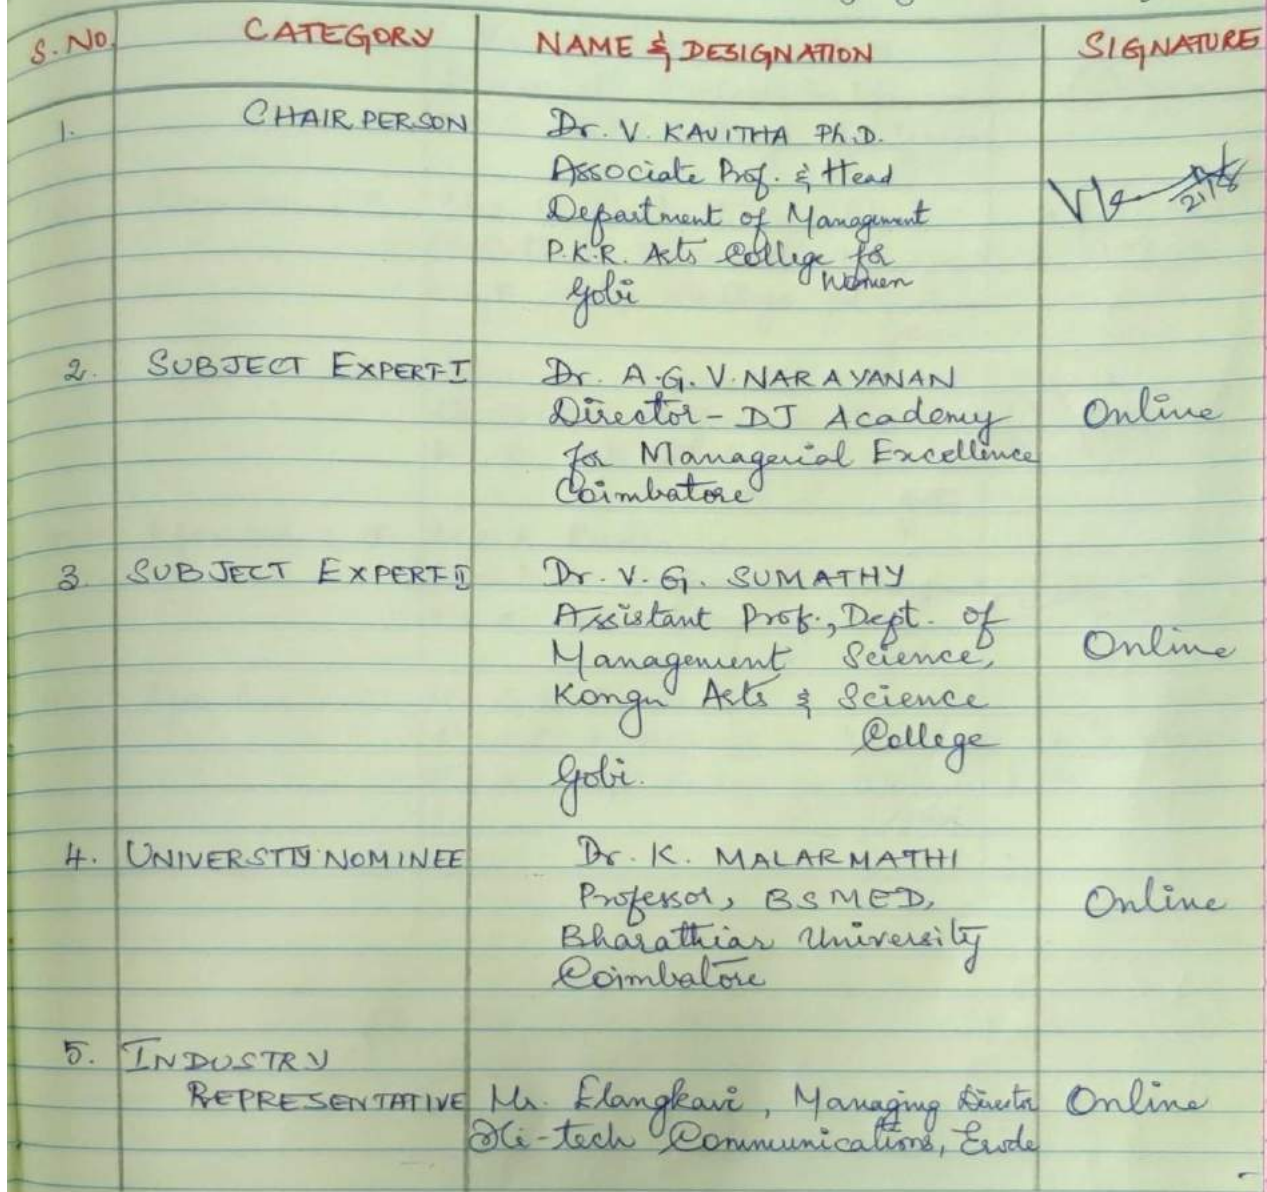 S. NO. CATEGORY NAME & DESIGNATION SIGNATURE
1. CHAIR PERSON Dr. V. KAVITHA Ph.D.
Associate Prof. & Head
Department of Management
P.K.R. Arts College for
Women
Gobi
2. SUBJECT EXPERT-I Dr. A.G.V. NARAYANAN
Director - DJ Academy Online
for Managerial Excellence
Coimbatore
3. SUBJECT EXPERT-II Dr. V. G. SUMATHY
Assistant Prof., Dept. of
Management Science, Online
Kongu Arts & Science
College
Gobi.
4. UNIVERSITY NOMINEE Dr. K. MALARMATHI
Professor, BSMED, Online
Bharathiar University
Coimbatore
5. INDUSTRY
REPRESENTATIVE Mr. Elangkavi, Managing Director Online
Hi-tech Communications, Erode